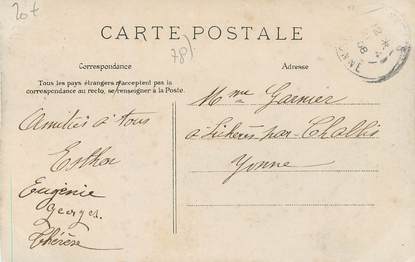 20f
78
CARTE POSTALE
Correspondance
Adresse
Tous les pays étrangers n'acceptent pas la
correspondance au recto, se renseigner à la Poste.
Mme Garnier
à Lichères par Chablis
Yonne
Amitiés à tous
Esther
Eugénie
Georges.
Thérèse